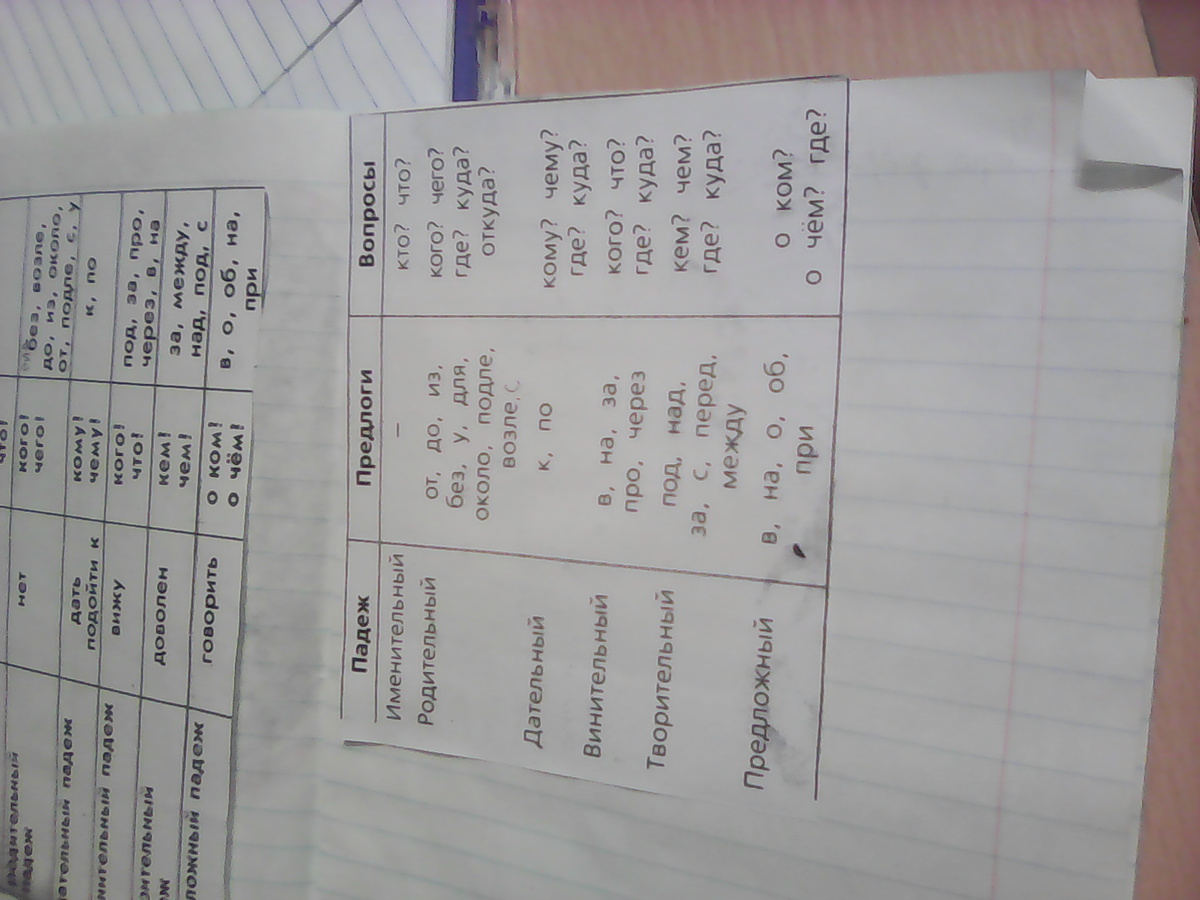 что!
нет кого! чего! без, возле, до, из, около, от, подле, с, у
падеж
дать подойти к кому! чему! к, по
вижу кого! что! под, за, про, через, в, на
доволен кем! чем! за, между, над, под, с
говорить о ком! о чём! в, о, об, на, при
Падеж Предлоги Вопросы
Именительный – кто? что?
Родительный от, до, из, кого? чего?
без, у, для, где? куда?
около, подле, откуда?
возле, с
Дательный к, по кому? чему?
где? куда?
Винительный в, на, за, кого? что?
про, через где? куда?
Творительный под, над, кем? чем?
за, с, перед, где? куда?
между
Предложный в, на, о, об, о ком?
при о чём? где?